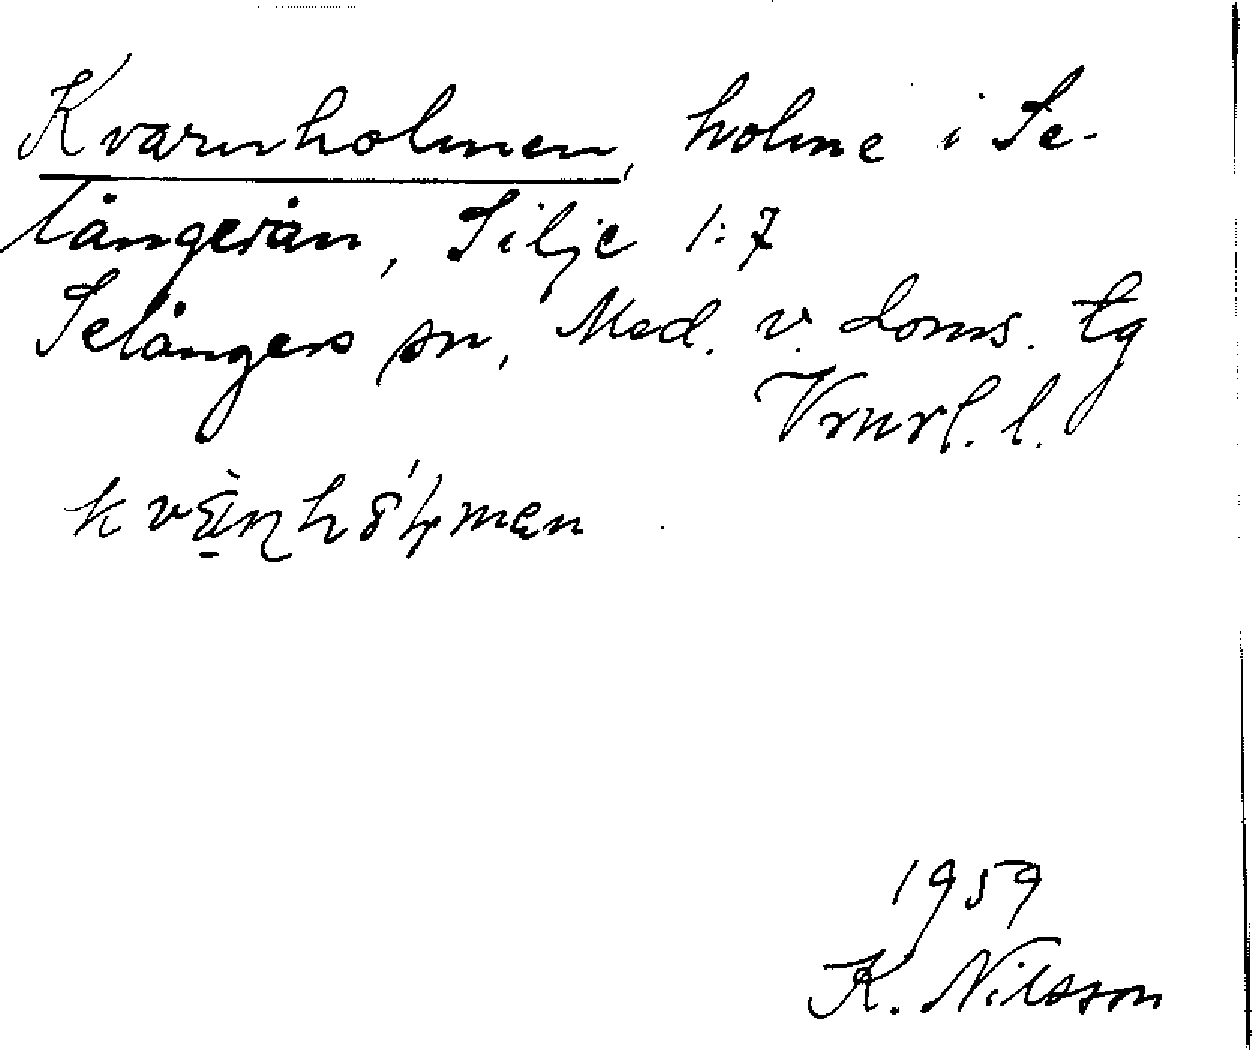 Kvarnholmen, holme i Se-
långerån, Silje 1:7
Selångers sn, Med. v. doms. tg
Vrnrl. l.
1959
K. Nilsson